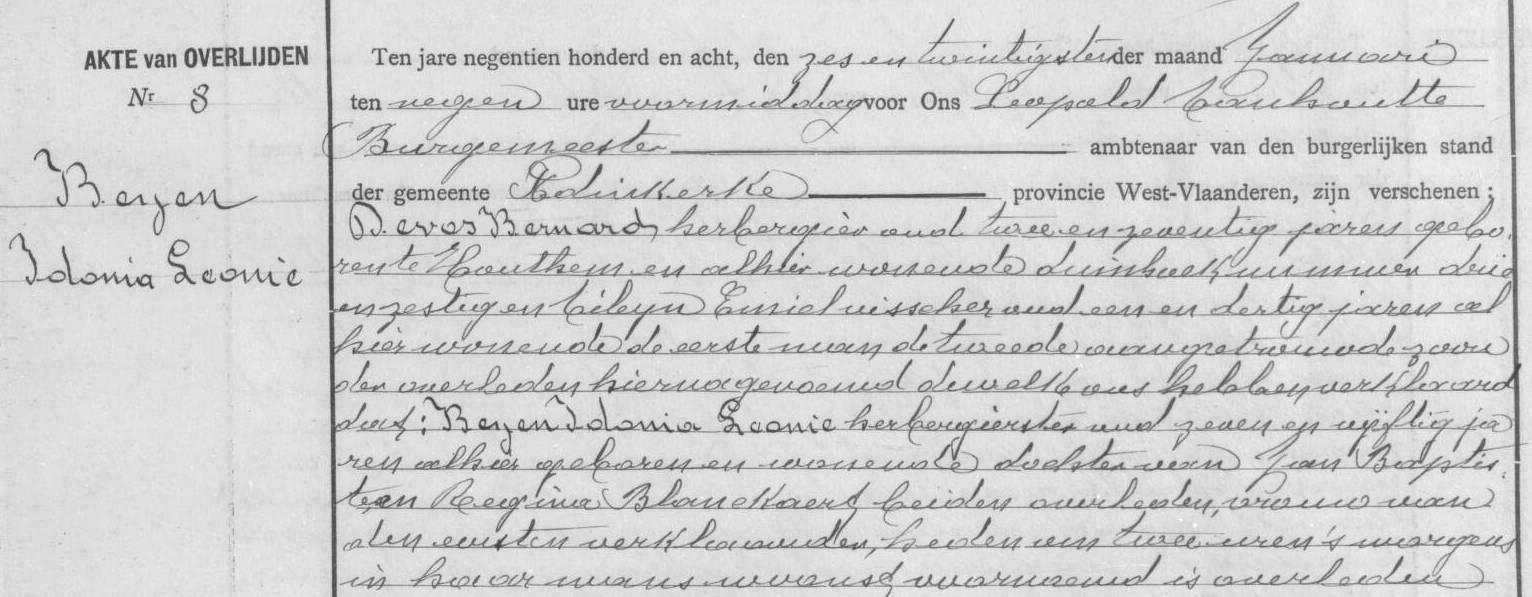 AKTE van OVERLIJDEN
Nr 8
Beyen
Idonia Leonie
Ten jare negentien honderd en acht, den zes en twintigsten der maand Januari
ten negen ure voormiddag voor Ons Leopold Vanhoutte
Burgemeester ambtenaar van den burgerlijken stand
der gemeente Adinkerke provincie West-Vlaanderen, zijn verschenen ;
Devos Bernard herbergier oud twee en zeventig jaren gebo
ren te Houthem en alhier wonende duinhoek nummer drie
en zestig en Cileyn Emiel visscher oud een en dertig jaren al
hier wonende de eerste man de tweede aangetrouwde zoon
der overleden hiernagenoemd dewelke ons hebben verklaard
dat : Beyen Idonia Leonie herbergierster oud zeven en vijftig ja
ren alhier geboren en wonende dochter van Jan Baptis
te en Regina Blanckaert beiden overleden, vrouw van
den eersten verklaarder, heden om twee uren 's morgens
in haar mans woonst voornoemd is overleden